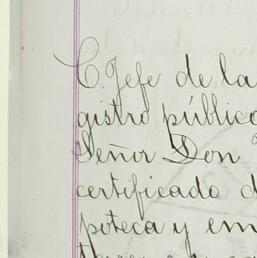 C. Jefe de la
gistro público
Señor Don
certificado d
poteca y em